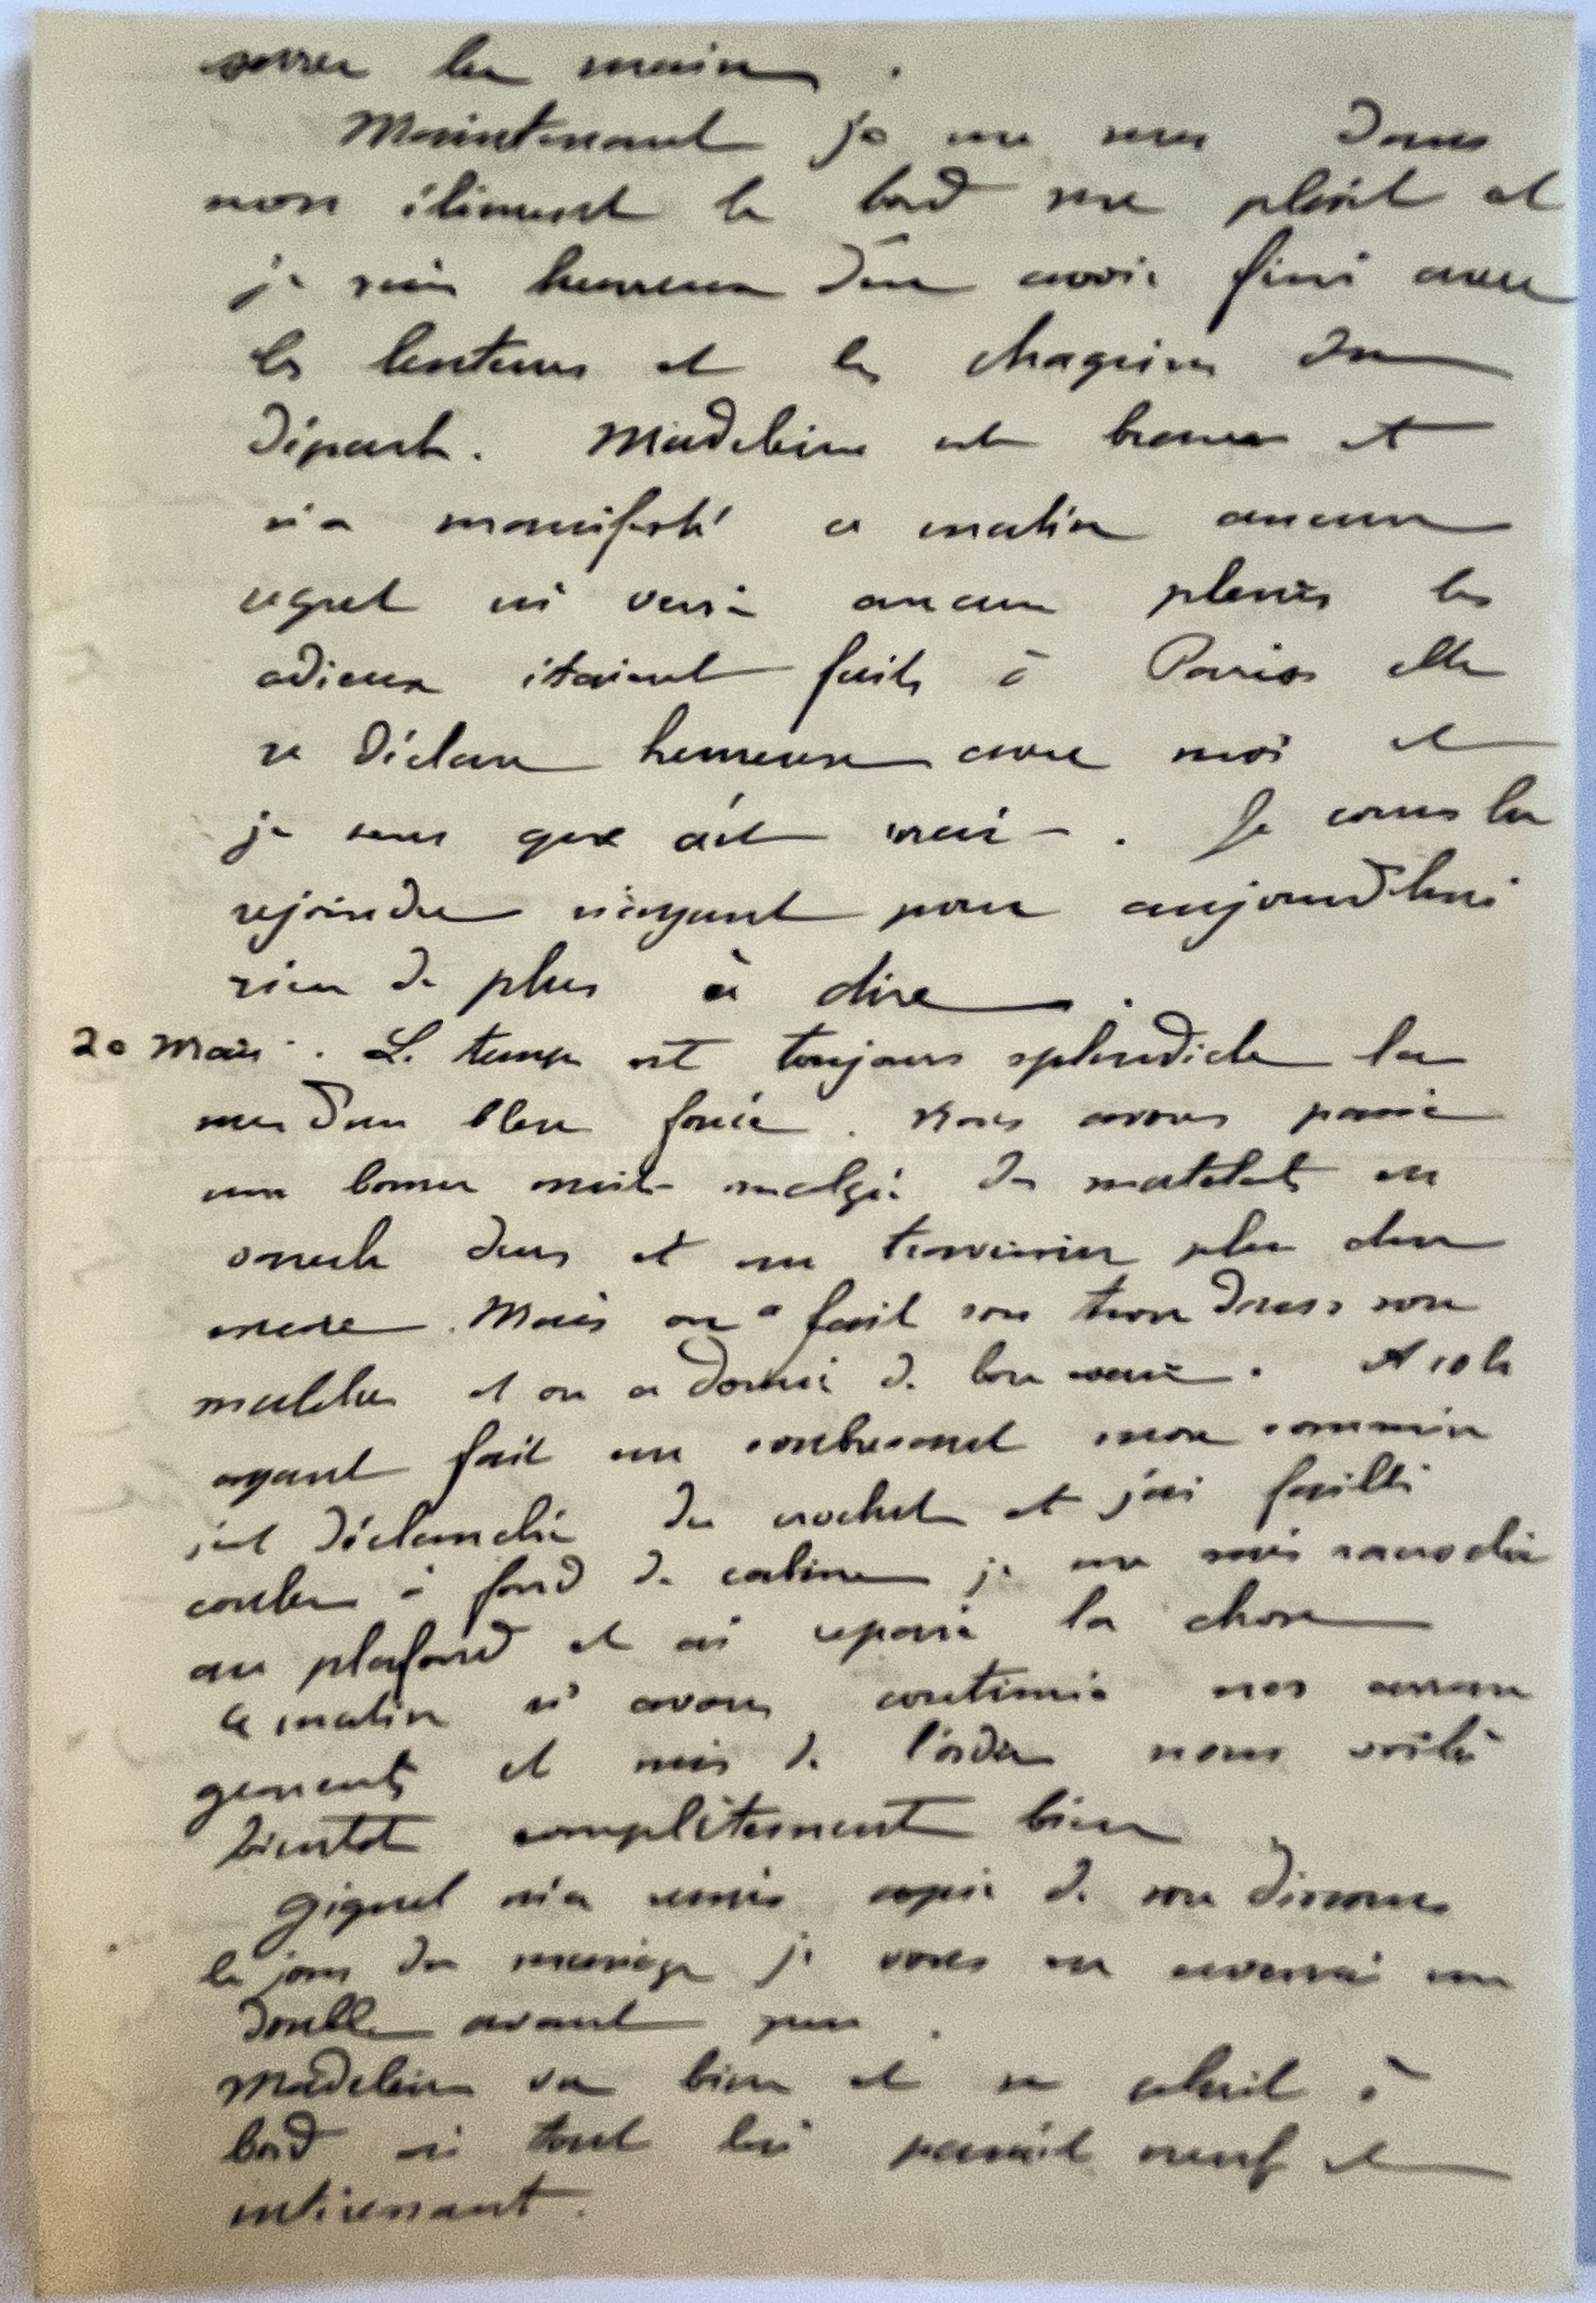 serrer la main.
Maintenant je me sens dans
mon élément le bord me plait et
je suis heureux d'en avoir fini avec
les lenteurs et les chagrins du
départ. Madeleine est brave et
n'a manifesté ce matin aucun
regret ni versé aucun pleurs les
adieux étaient faits à Paris elle
se déclare heureuse avec moi et
je sens que c'est vrai. Je cours la
rejoindre n'ayant pour aujourd'hui
rien de plus à dire.
20 Mars. Le temps est toujours splendide la
mer d'un bleu foncé. Nous avons passé
une bonne nuit malgré des matelats un
durs et un traversin plus dur
encore. Mais on a fait son trou dans son
matelas et on a dormi de bon. A 10 h
ayant fait un soubresaut mon sommier
s'est déclanché du crochet et j'ai failli
couler à fond de cabine je me suis raccroché
au plafond et ai reparé la chose
Ce matin n' avons continué nos arran
gements et mis de l'ordre nous voilà
bientot complètement bien
Giquel m'a remis copie de son discours
le jour du mariage je vous en enverrai un
double avant peu.
Madeleine va bien et se plait à
bord où tout lui parait neuf et
intéressant.